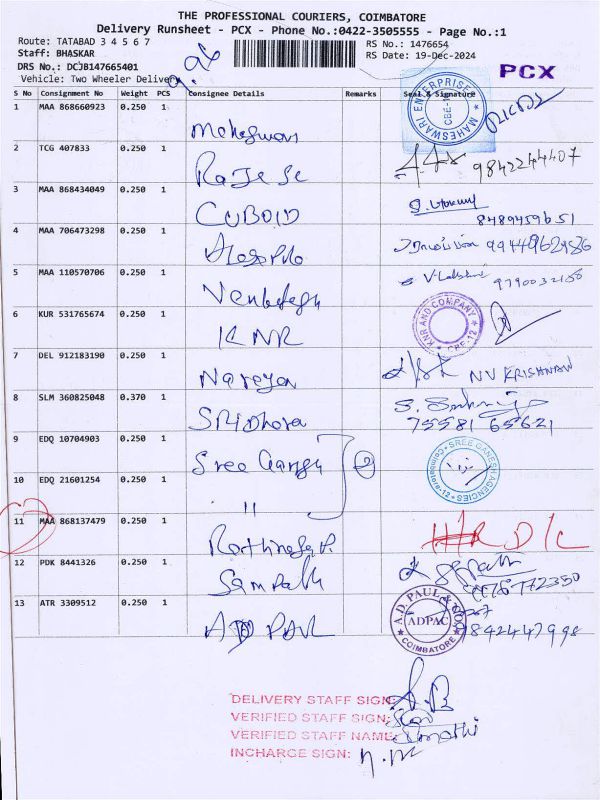 THE PROFESSIONAL COURIERS, COIMBATORE
Delivery Runsheet - PCX - Phone No.:0422-3505555 - Page No.:1
Route: TATABAD 3 4 5 6 7
RS No.: 1476654
Staff: BHASKAR
RS Date: 19-Dec-2024
DRS No.: DCJB147665401
PCX
Vehicle: Two Wheeler Delivery
S No Consignment No Weight PCS Consignee Details Remarks Seal & Signature
1 MAA 868660923 0.250 1 Maheswari
MAHESWARI ENTERPRISES
2 TCG 407833 0.250 1 Rajese 9842244407
3 MAA 868434049 0.250 1 CUBOID 8489459651
4 MAA 706473298 0.250 1
5 MAA 110570706 0.250 1 Venkatesh V-Lakshmi 9790032150
6 KUR 531765674 0.250 1 KNR
KNR AND COMPANY CBE-12
7 DEL 912183190 0.250 1 Narayan NV KRISHNAN
8 SLM 360825048 0.370 1 SRIDhara 75581 65621
9 EDQ 10704903 0.250 1 Sree Ganesh 2
SREE GANESH AGENCIES Coimbatore-12
10 EDQ 21601254 0.250 1 "
11 MAA 868137479 0.250 1 D/C
12 PDK 8441326 0.250 1 Sampath
13 ATR 3309512 0.250 1 AD PAUL
A.D. PAUL & CO ADPAC COIMBATORE
DELIVERY STAFF SIGN:
VERIFIED STAFF SIGN:
VERIFIED STAFF NAME:
INCHARGE SIGN: